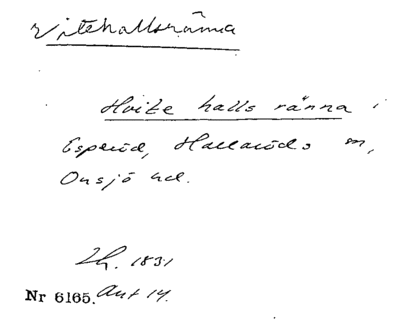 Vitehallsränna
Hvite halls ränna i
Esperöd, Hallaröds sn,
Onsjö hd.
Lh. 1831
Nr 6165. Akt 14.